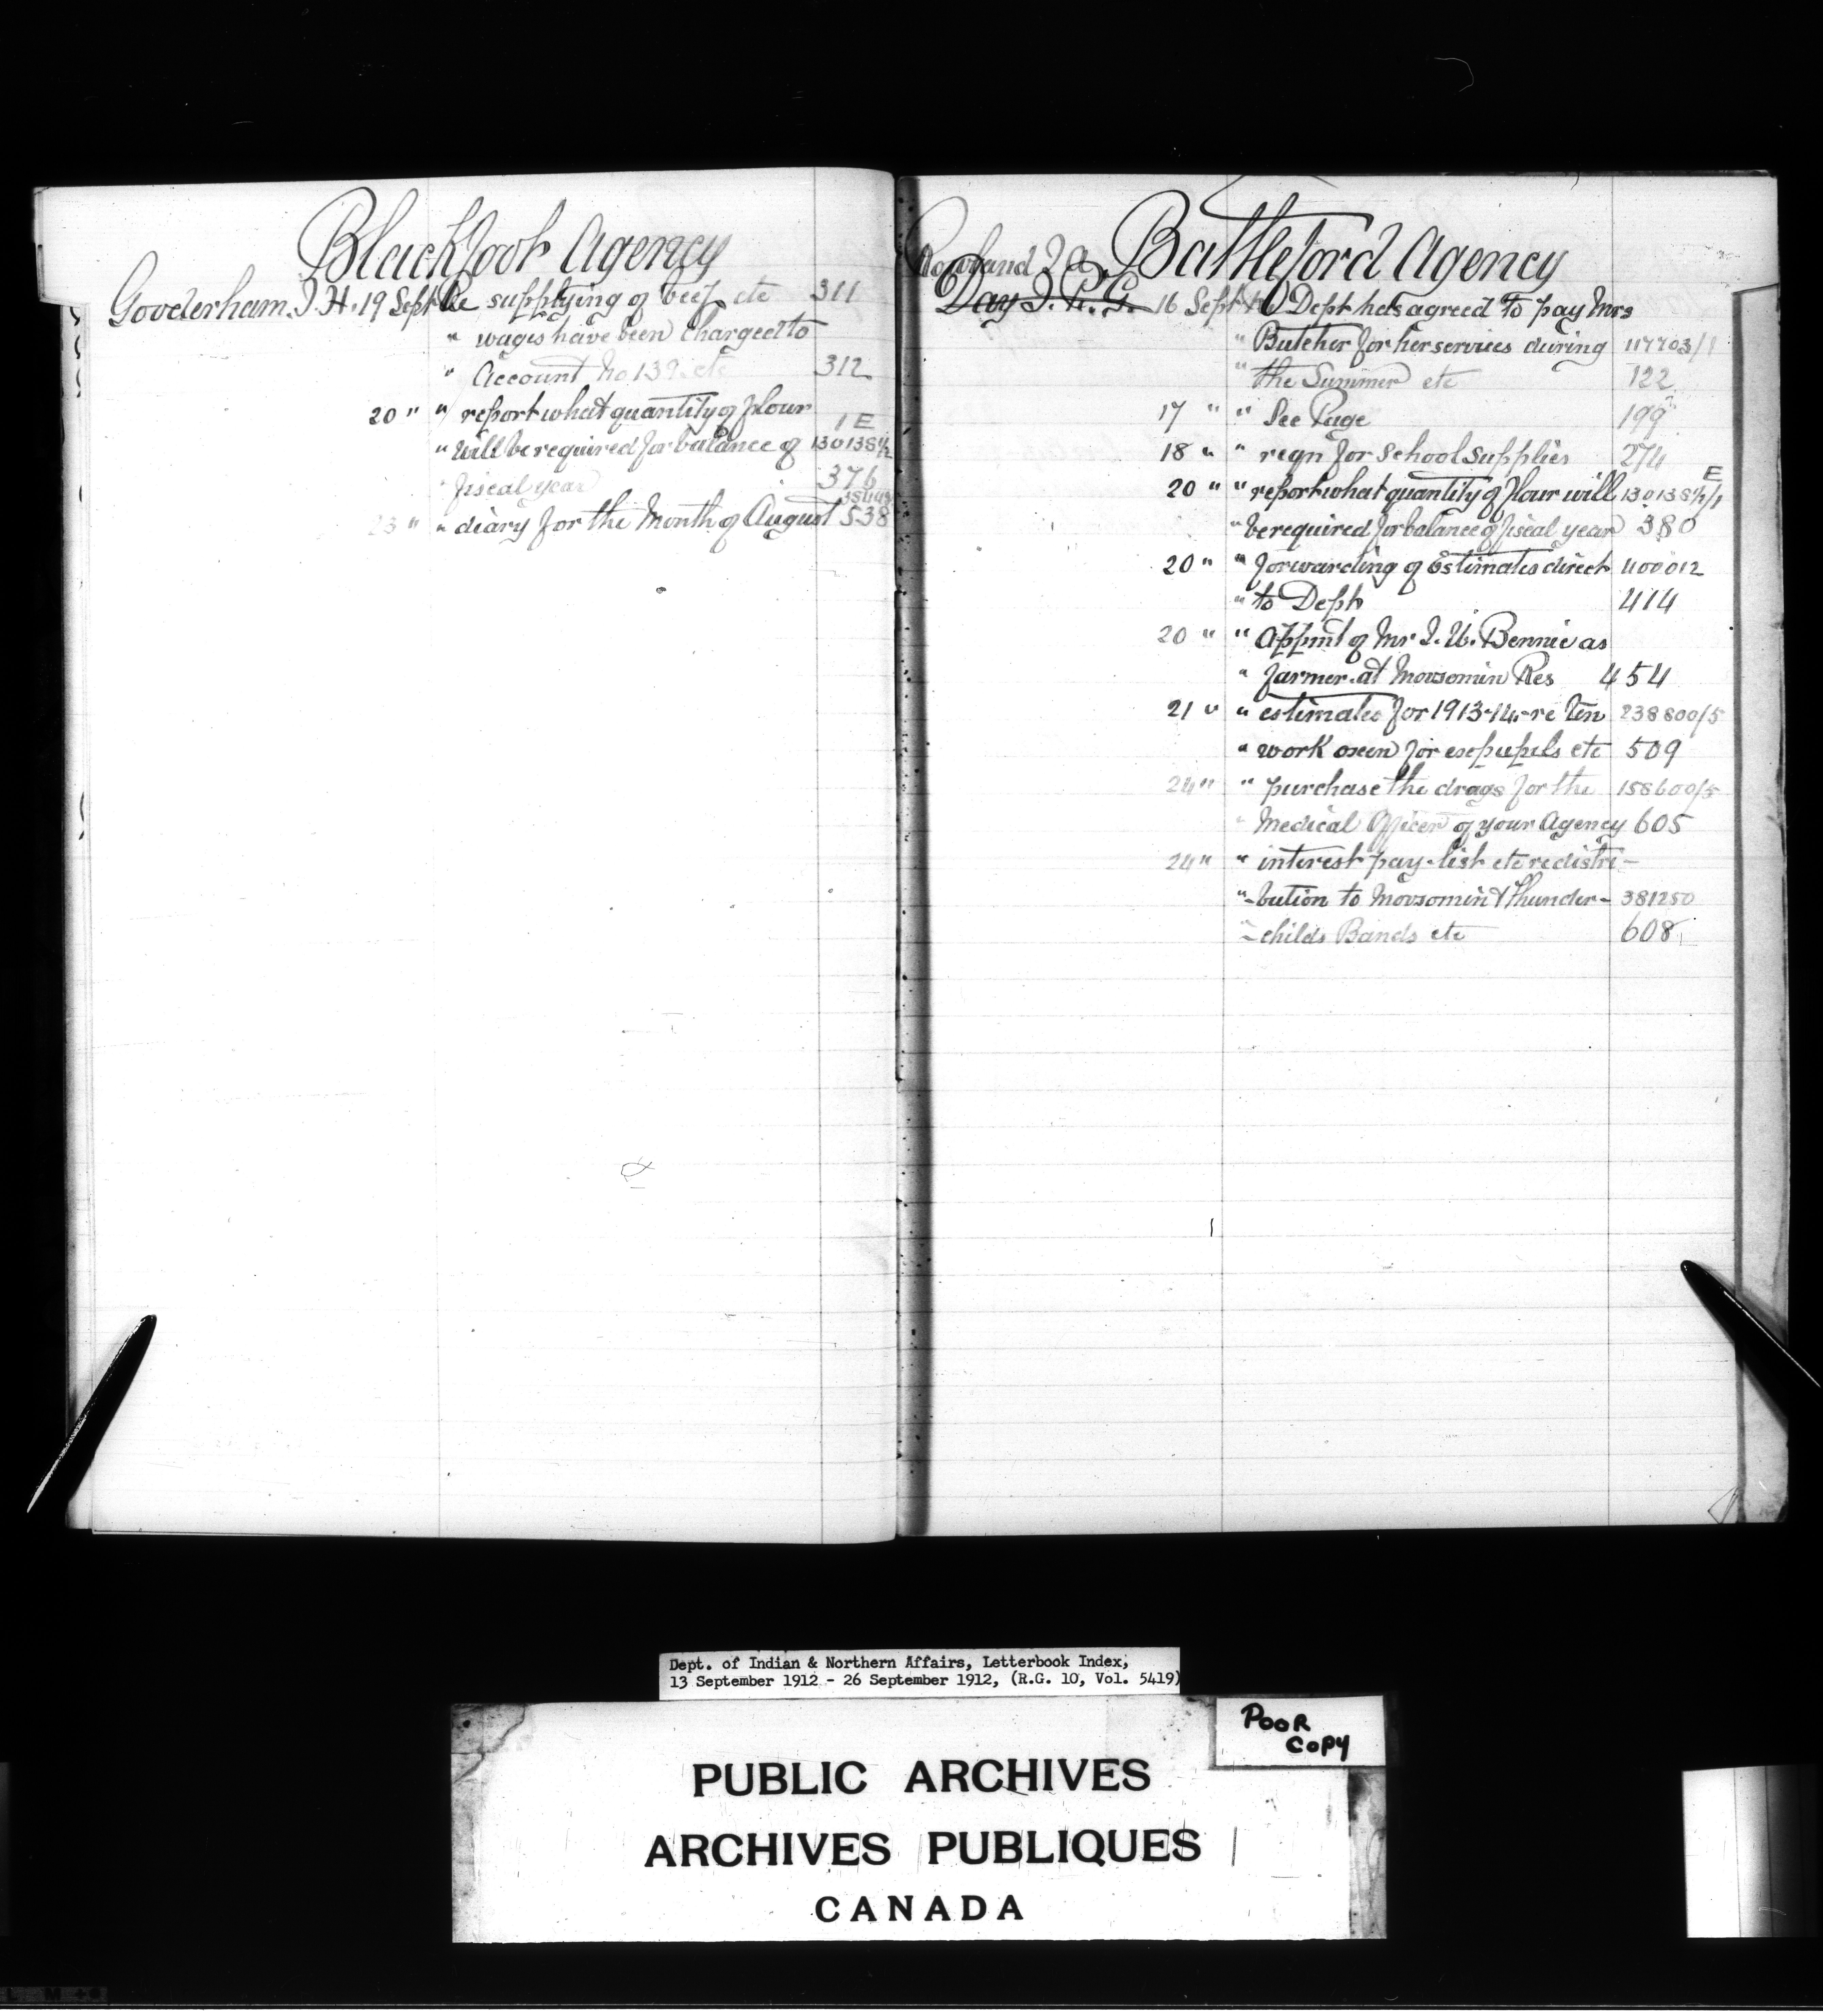 Blackfoot Agency
Gooderham. J. H. 19 Sept Re supplying of beef etc 311
" wages have been Chargeed to
" Account No 139 etc 312
20 " " report what quantity of flour 1 E
" will be required for balance of 130138½
" fiscal year 376
23 " " diary for the Month of August 538
Rowland J. A. Battleford Agency
Day J. P. G. 16 Sept Re Dept has agreed to pay Mrs
" Butcher for her services during 117703/1
" the Summer etc 122
17 " " See Page 199
18 " " reqn for School supplies 274
E
20 " " report what quantity of flour will 130138½/1
" be required for balance of fiscal year 380
20 " " forwarding of Estimates direct 400012
" to Dept 414
20 " " Appmt of Mr J. W. Bennie as
" farmer at Moosomin Res 454
21 " " estimates for 1913-14.-re ten 238800/5
" work oxen for ex-pupils etc 509
24 " " purchase the drags for the 158600/5
" Medical Officer of your Agency 605
24 " " interest pay-list etc re distri-
" -bution to Moosomin & Thunder- 381250
" -childs Bands etc 608
Dept. of Indian & Northern Affairs, Letterbook Index,
13 September 1912 - 26 September 1912, (R.G. 10, Vol. 5419)
POOR
COPY
PUBLIC ARCHIVES
ARCHIVES PUBLIQUES
CANADA